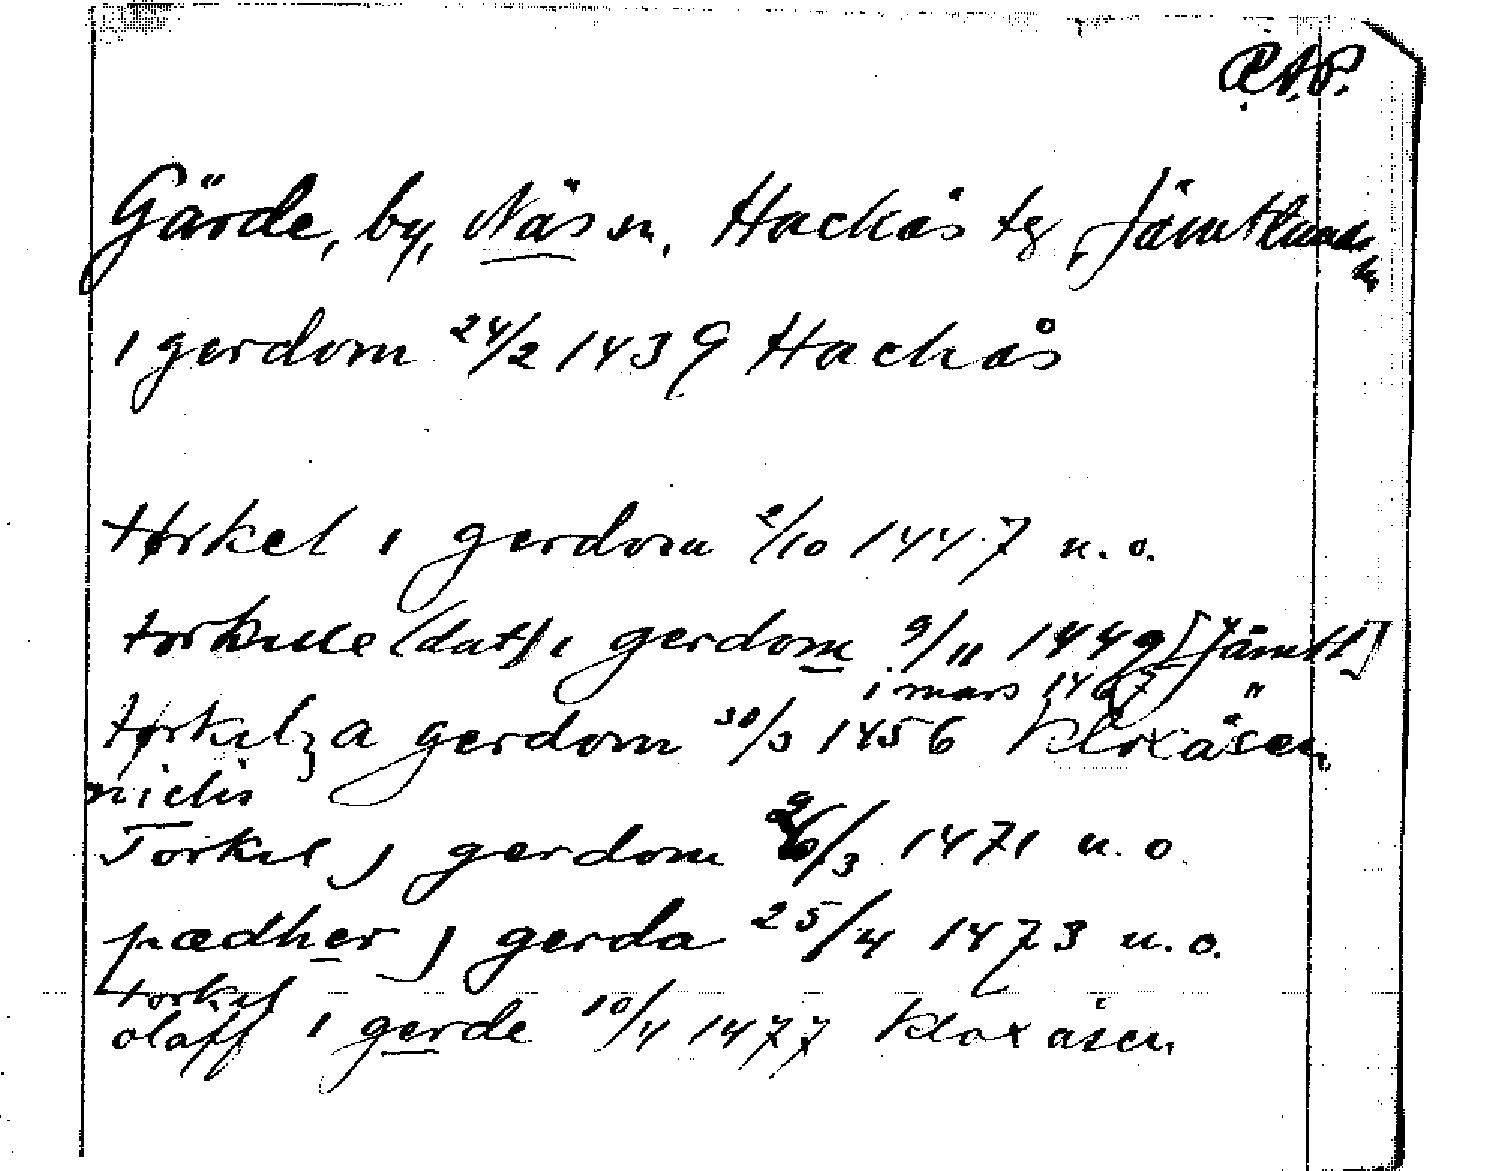 R.A.P.
Gärde, by, Näs sn, Hackås tg, Jämtlands
l.
i gerdom 24/2 1439 Hackås
tørkel i gerdom 2/10 1447 u. o.
torkille (dat) i gerdom 9/11 1449 [Jämtl]
i mars 1467 "
tørkilz a gerdom 30/3 1456 Kloxåsen
nielis
Torkil j gerdom 26/3 1471 u. o.
pædher j gerda 25/4 1473 u. o.
torkil
olaff i gerde 10/4 1477 Kloxåsen